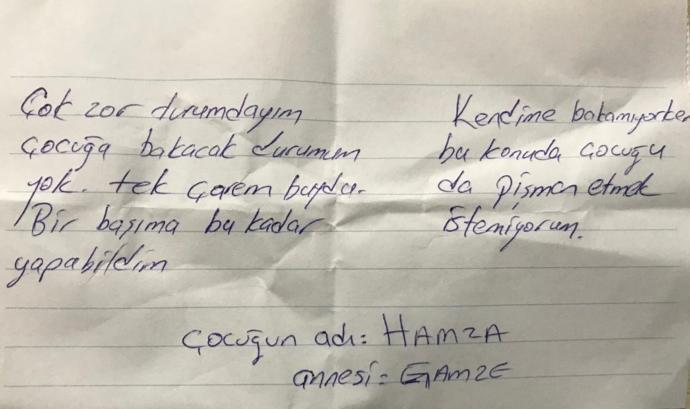 Çok zor durumdayım
Çocuğa bakacak durumum
yok. tek çarem buydu.
Bir başıma bu kadar
yapabildim
Kendime bakamıyorken
bu konuda çocuğu
da pişman etmek
istemiyorum.
Çocuğun adı: HAMZA
annesi: GAMZE